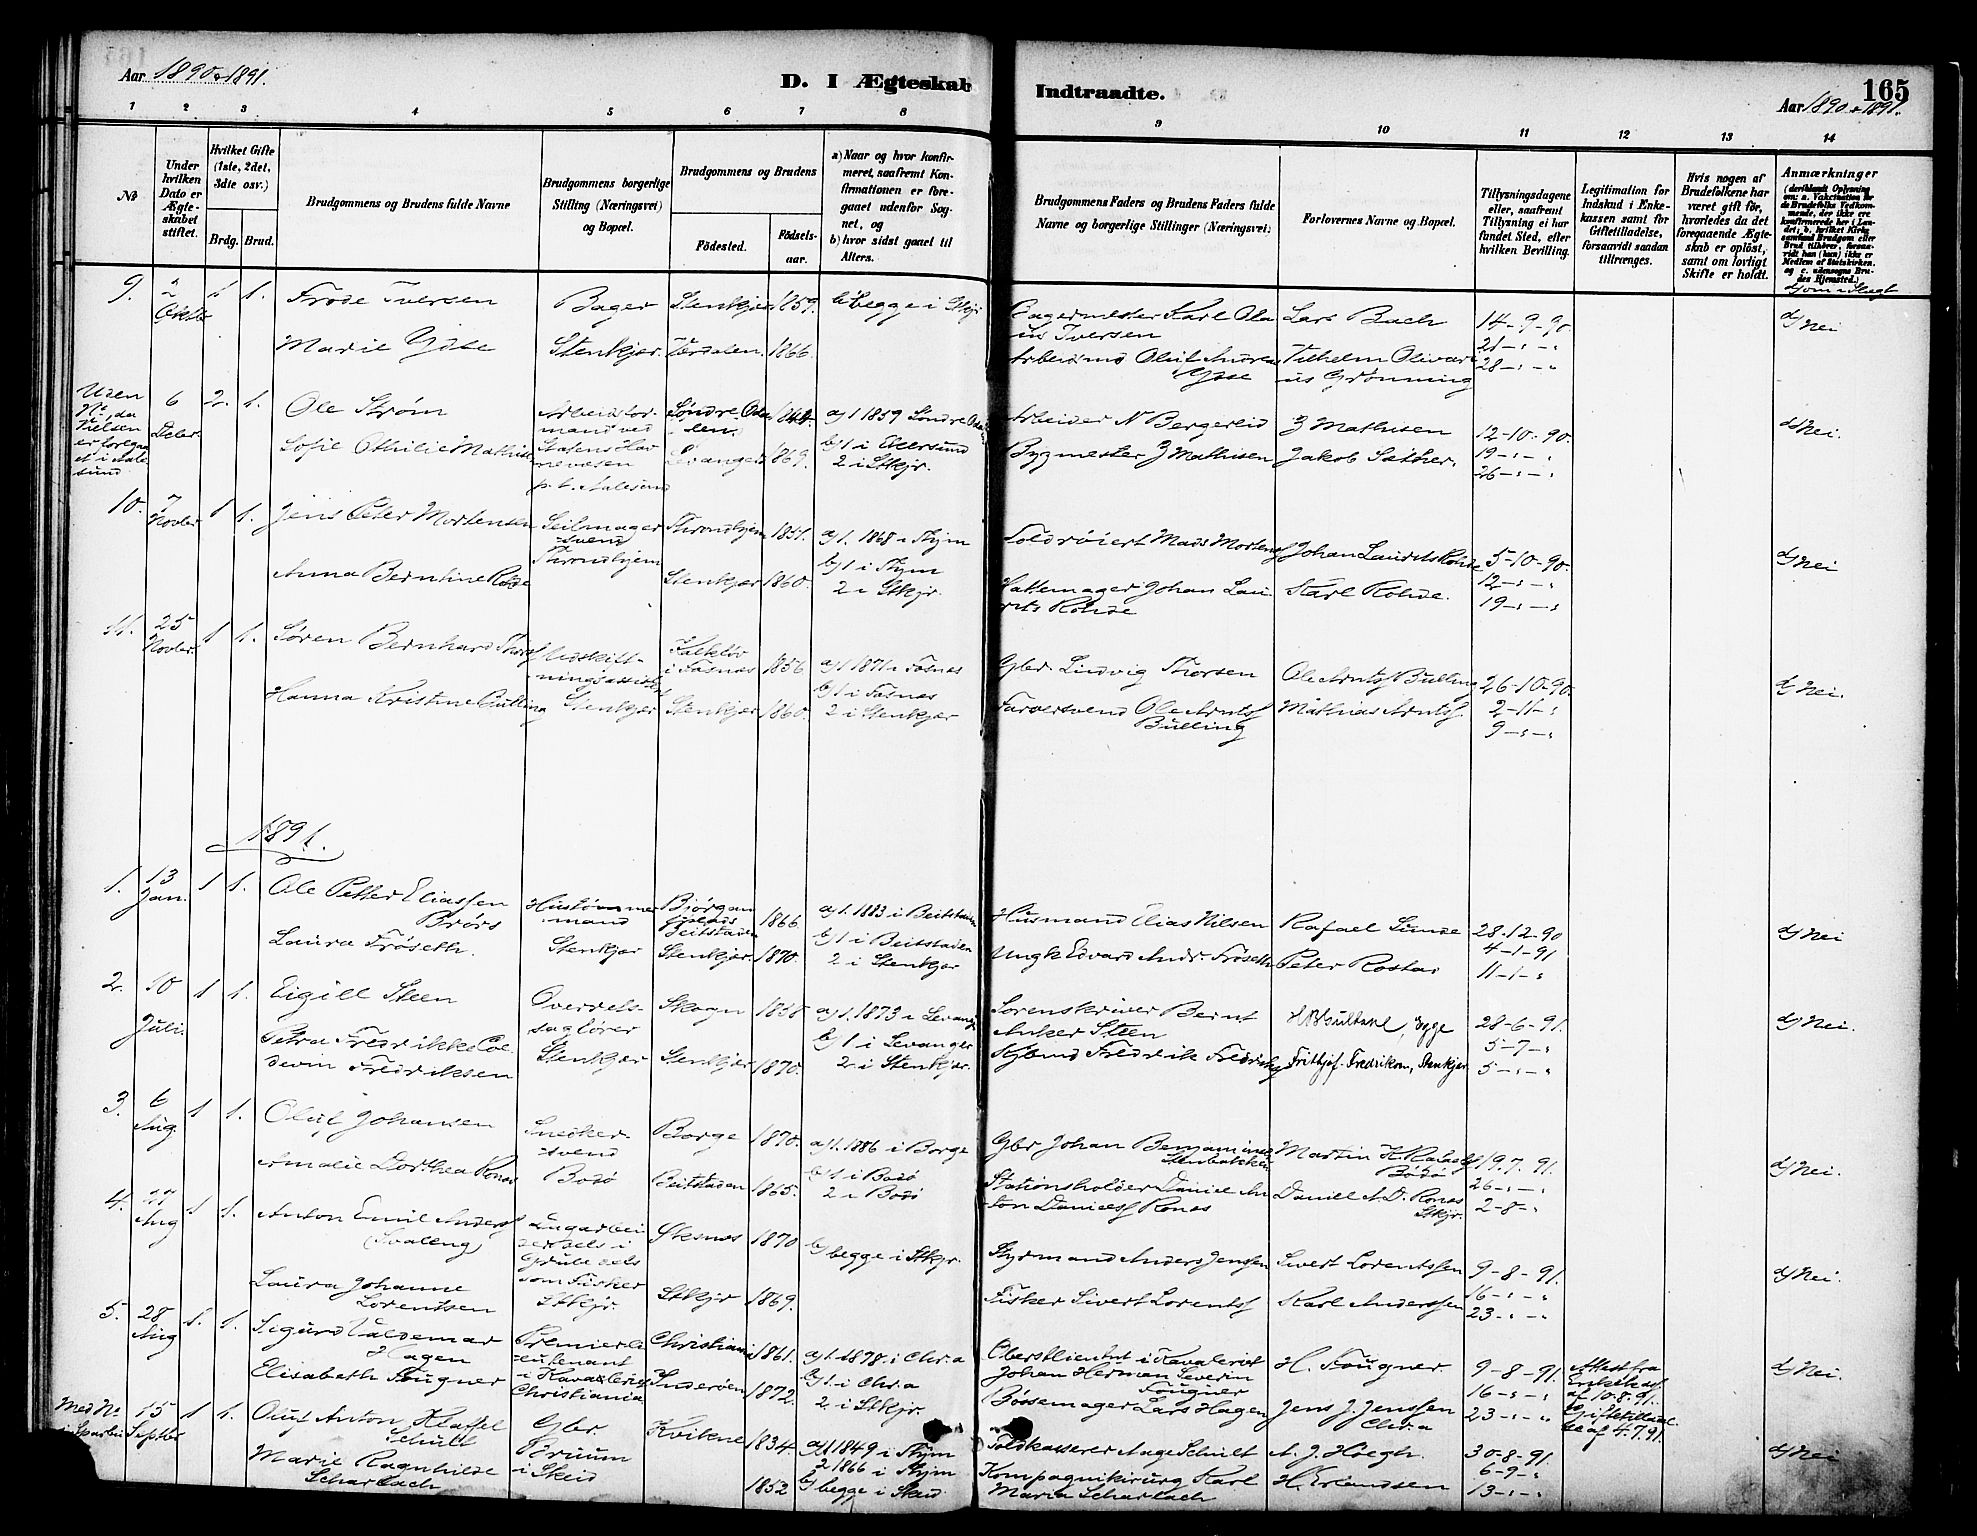 Aar 1890 & 1891.
D. I Ægteskab Indtraadte.
165
Aar 1890 & 1891.
1 2 3 4 5 6 7 8 9 10 11 12 13 14
№
Under hvilken Dato er Ægteskabet stiftet.
Hvilket Gifte (1ste, 2det, 3dte osv.)
Brdg. Brud.
Brudgommens og Brudens fulde Navne
Brudgommens borgerlige Stilling (Næringsvei) og Bopæl.
Brudgommens og Brudens
Födested. Födselsaar.
a) Naar og hvor konfirmeret, saafremt Konfirmationen er foregaaet udenfor Sognet, og
b) hvor sidst gaaet til Alters.
Brudgommens Faders og Brudens Faders fulde Navne og borgerlige Stillinger (Næringsvei)
Forlovernes Navne og Bopæl.
Tillysningsdagene eller, saafremt Tillysning ei har fundet Sted, efter hvilken Bevilling.
Legitimation for Indskud i Enkekassen samt for Giftetilladelse, forsaavidt saadan tiltrænges.
Hvis nogen af Brudefolkene har været gift før, hvorledes da det foregaaende Ægteskab er opløst, samt om lovligt Skifte er holdt.
Anmærkninger
9. 2 Oktbr 1 1. Frode Iversen Bager Stenkjær 1859. b) begge i Stkjr
Bagermester Karl Olaus Iversen Lars Bach 14-9-90. d) Nei
Marie Ydse Stenkjær. Værdalen. 1866.
21-"-"
Ydse Vilhelm Olivarius Grønning 28-"-"
Uden № da Vielsen er foregaaet i Aalesund
6 Decbr. 2. 1. Ole Strøm Søndre Odalen. 1844. a) 1. 1859 Søndre Odalen
Arbeider N Bergereid Z Mathisen 12-10-90. d) Nei.
Sofie Othilie Mathisen Statens Havnevæsen p. t. Aalesund Levanger 1869. b) 1 i Ekersund 2 i Stkjr.
Bygmester Z Mathisen Jakob Sæther. 19-"-" 26-"-"
10. 7 Novbr. 1 1. Jens Peter Mortensen Seilmagersvend Throndhjem Throndhjem 1851. a) 1. 1868 i Thjm
Toldrøiert Mads Mortens Johan Laurits Rohde 5-10-90. d) Nei
Anna Berntine Rohde Stenkjær 1860. b) 1 i Thjm 2 i Stkjr.
Hattemager Johan Laurits Rohde Karl Rohde. 12-"-" 19-"-"
11. 25 Novbr. 1 1. Søren Bernhard Thors Udskiftningsassistent Stenkjær i Fosnæs 1856. a) 1. 1871 i Fosnæs
Gbr. Ludvig Thorsen Ole Arnts Bulling 26-10-90. d) Nei.
Hanna Kristine Bulling Stenkjær 1860. b) 1 i Fosnæs 2 i Stenkjær
Farversvend Ole Arnts Bulling Mathias Arnts 2-11-" 9-"-"
1891.
1. 13 Jan. 1 1. Ole Petter Eliassen Brørs Hustømmermand Stenkjær Bjørgan Beitstaden 1866. a) 1. 1883 i Beitstaden
Husmand Elias Nilsen Rafael Lunde 28-12-90 d) Nei
Laura Frøseth. Stenkjær. 1870. b) 1 i Beitstaden 2 i Stenkjær
Ungk Edvard Andr. Frøseth Peter Rostad 4-1-91 11-1-"
2. 10 Juli. 1 1. Eigill Steen Overretssagfører Stenkjær Skogn 1858 a) 1. 1873 i Levanger
Sorenskriver Bernt Anker Steen Egge 28-6-91. d) Nei.
Petra Fredrikke Coldevin Fredriksen Stenkjær 1870. b) 1 i Levanger 2 i Stenkjær.
Kjbmd Fredrik Fredriks Frithjof Fredriksen, Stenkjær. 5-7-" 5-"-"
3. 6 Aug. 1 1. Oluf Johansen Snedkersvend Bodø Borge 1870. a) 1. 1886 i Borge
Gbr Johan Benjaminsen Martin H Bodø 19.7.91. d) Nei.
Amalie Dorthea Ronas Beitstaden 1865. b) 1 i Bodø 2 i Bodø
Stationsholder Daniel Anton Daniels Ronas Daniel A. D. Ronas Stkjr. 26-"-" 2-8-"
4. 27 Aug 1 1. Anton Emil Anders (Svaleng) Øksnes 1870 b) begge i Stkjr.
Styrmand Anders Jenssen Sivert Lorentssen 9-8-91. d) Nei.
Laura Johanne Lorentsen som Fisker Stkjr. Stkjr 1869.
Fisker Sivert Lorents Karl Anderssen 16-"-" 23-"-"
5. 28 Aug 1. 1. Sigurd Valdemar Hagen Premierleutenant i Kavaleriet Christiania Christiania 1861. a) 1. 1878. i Chr.a
Oberstlieutnt i Kavaleriet Johan Herman Severin Fougner H. Fougner 9-8-91. d) Nei
Elisabeth Fougner Inderøen 1872. b) 1. i Chr.a 2 i Stkjr.
Bøssemager Lars Hagen Jens J. Jenssen Chr.a 16-"-" 23-"-"
Attest fra Enkek. af 10.8.91. Giftetilladelse af 4.7.91.
Med № i Sparbu 15 Septbr 1 1. Oluf Anton Klaffel Schult Gbr. Bruum i Skeid Kvikne 1834. a) 1. 1849 i Thjm 2 1866 i Thjm
Toldkasserer Aage Schult A. J. Høegh. 30-8-91. d) Nei
Marie Ragnhilde Scharbach 1852 b) begge i Skeid
Kompagnikirurg Karl Maria Scharbach H. Erlandsen 6-9-" 13-"-"